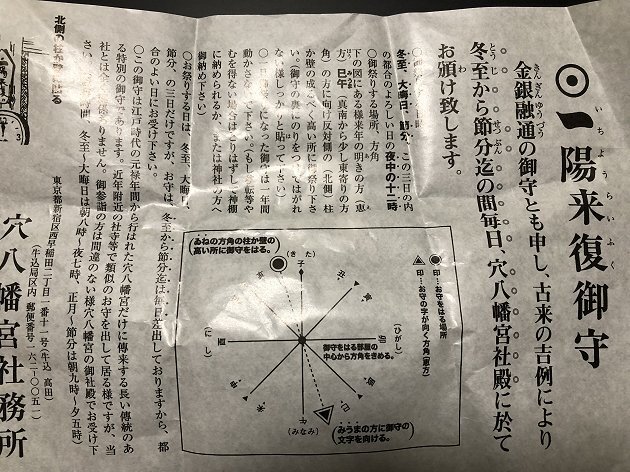 一陽来復御守
いちようらいふく
金銀融通の御守とも申し、古来の古例により
きんぎんゆうづう
冬至から節分迄の間毎日、穴八幡宮社殿に於て
とうじ せつぶん
お頒け致します。
わ
冬至、大晦日、節分、この三日の内
の都合のよろしい日の夜中の十二時
○御祭りする場所、方角
下の図にある様来年の明きの方(恵
方)巳午(真南から少し東寄りの方
角)の方に向け反対側の(北側)柱
か壁の成べく高い所に御祭り下さ
い。(御守の裏にのりをつけてはがれ
ない様しっかりと貼って下さい)
○一旦お祭りになった御守は一年間
動かさないで下さい。もし移転等や
むを得ない場合は はずして神棚
に納められるか、または神社の方へ
御納め下さい)
○お祭りする日は、冬至、大晦日、
節分、の三日だけですが、お守は、冬至から節分迄は毎日差出しておりますから、都
合のよい日にお受け下さい。
○この御守は江戸時代の元禄年間から行はれた穴八幡宮だけに伝来する長い伝統のあ
る特別の御守であります。近年附近の社寺等で類似のお守を出して居る様ですが、当
社とは全 係ありません。御参詣の方は間違のない様穴八幡宮の御社殿でお受け下
さい 時間、冬至〜大晦日は朝八時〜夜七時、正月〜節分は朝九時〜夕五時)
東京都新宿区西早稲田二丁目一番十一号(牛込 高田)
(牛込局区内 郵便番号 一六二-〇〇五一)
穴八幡宮社務所
◉印…お守をはる場所
▲印…お守の字が向く方角(恵方)
ゐねの方角の柱か壁の
高い所に御守をはる。
(きた)
子
丑
寅
(ひがし)
卯
御守をはる部屋の
中心から方角をきめる。
巳
午
(みなみ)
未
申
(にし)
亥
みうまの方に御守の
文字を向ける。
北側の柱か